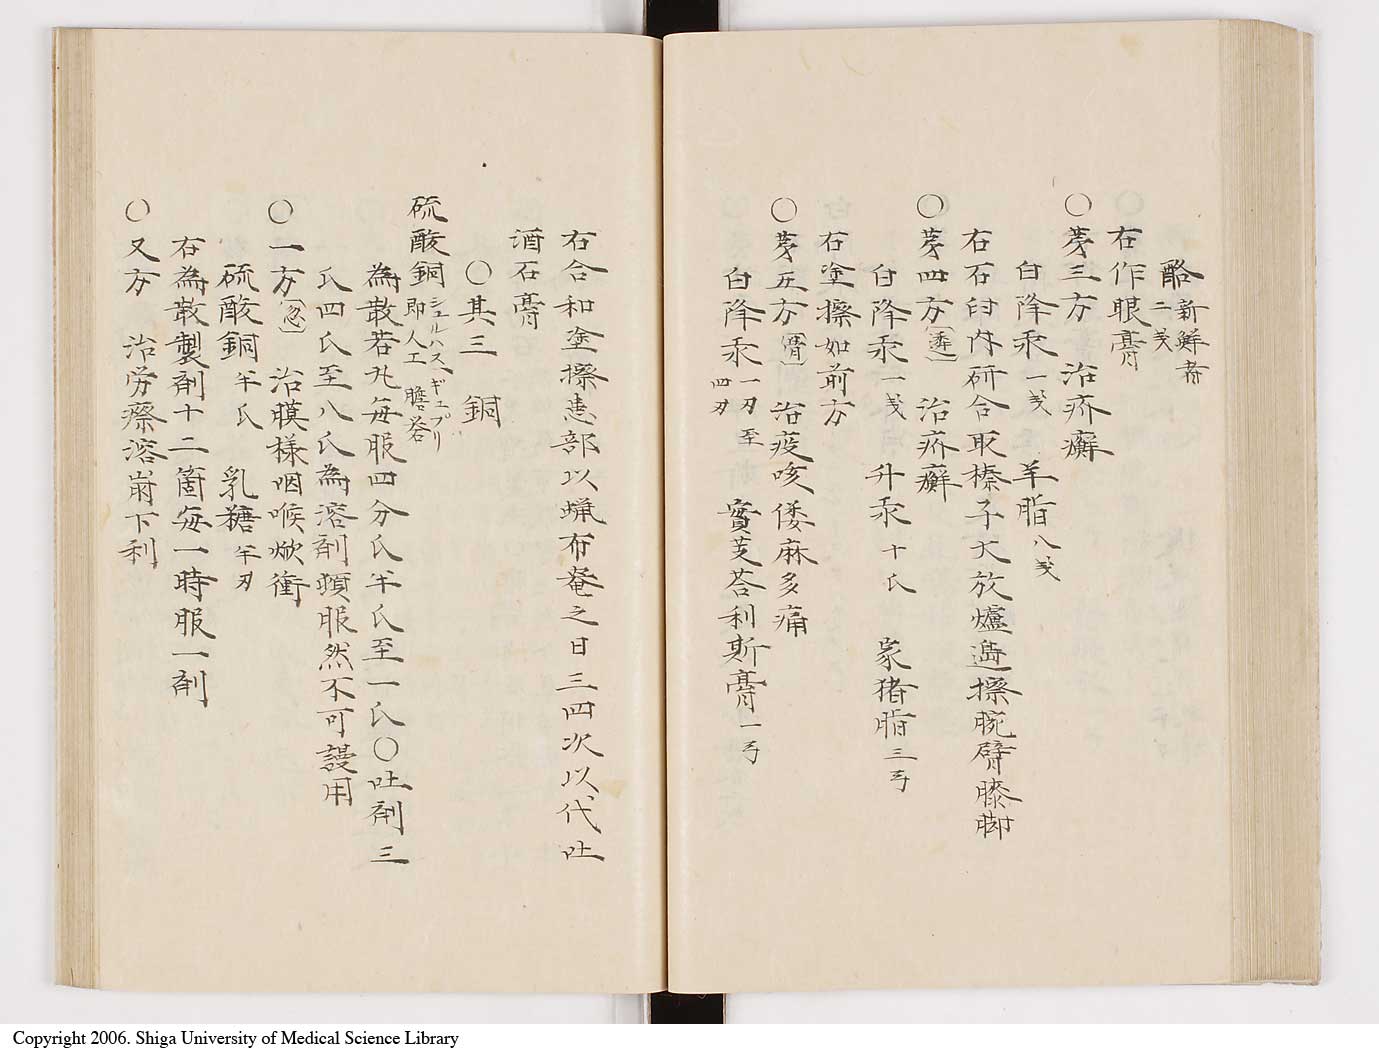 酪 新鮮者 二戔
右作眼膏
〇第三方 治疥癬
白降汞一戔 羊脂八戔
右石臼内研合取榛子大放爐邊擦腕臂膝脚
〇第四方 治疥癬
白降汞一戔 升汞十氏 豕猪脂三㐧
右塗擦如前方
〇第五方 治疫咳倭麻多痛
白降汞一刃至四刃 實芰荅利斯膏一㐧
右合和塗擦患部以蝋布菴之日三四次以代吐
酒石膏
〇其三 銅
硫酸銅 シュルハス、ギュプリ 即人工膽礬
為散若丸毎服四分氏半氏至一氏〇吐剤三
氏四氏至八氏為溶剤頓服然不可謾用
〇一方(忽) 治膜様咽喉焮衝
硫酸銅半氏 乳糖半刃
右為散製剤十二箇毎一時服一剤
〇又方 治労瘵溶崩下利
Copyright 2006. Shiga University of Medical Science Library